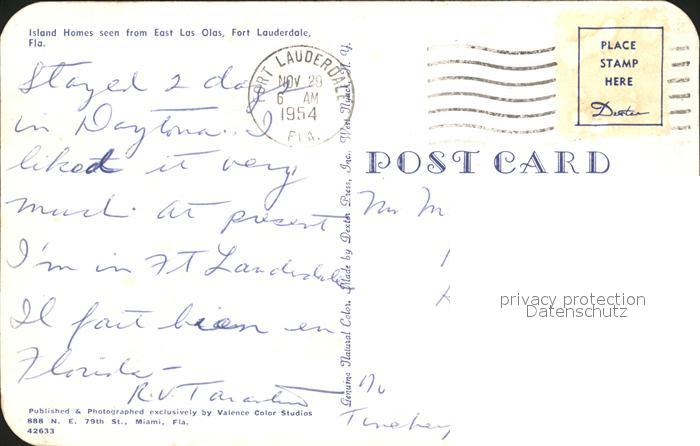 Island Homes seen from East Las Olas, Fort Lauderdale,
Fla.
Stayed 2 days
in Daytona. I
liked it very
much. At present
I'm in Ft Lauderdale
Il fait bien en
Florida—
R.V.
Published & Photographed exclusively by Valence Color Studios
888 N. E. 79th St., Miami, Fla.
42633
FORT LAUDERDALE
NOV 29
6 AM
1954
FLA.
Genuine Natural Color. Made by Dexter Press, Inc., West Nyack, N. Y.
PLACE
STAMP
HERE
Dexter
POST CARD
Mr M
privacy protection
Datenschutz